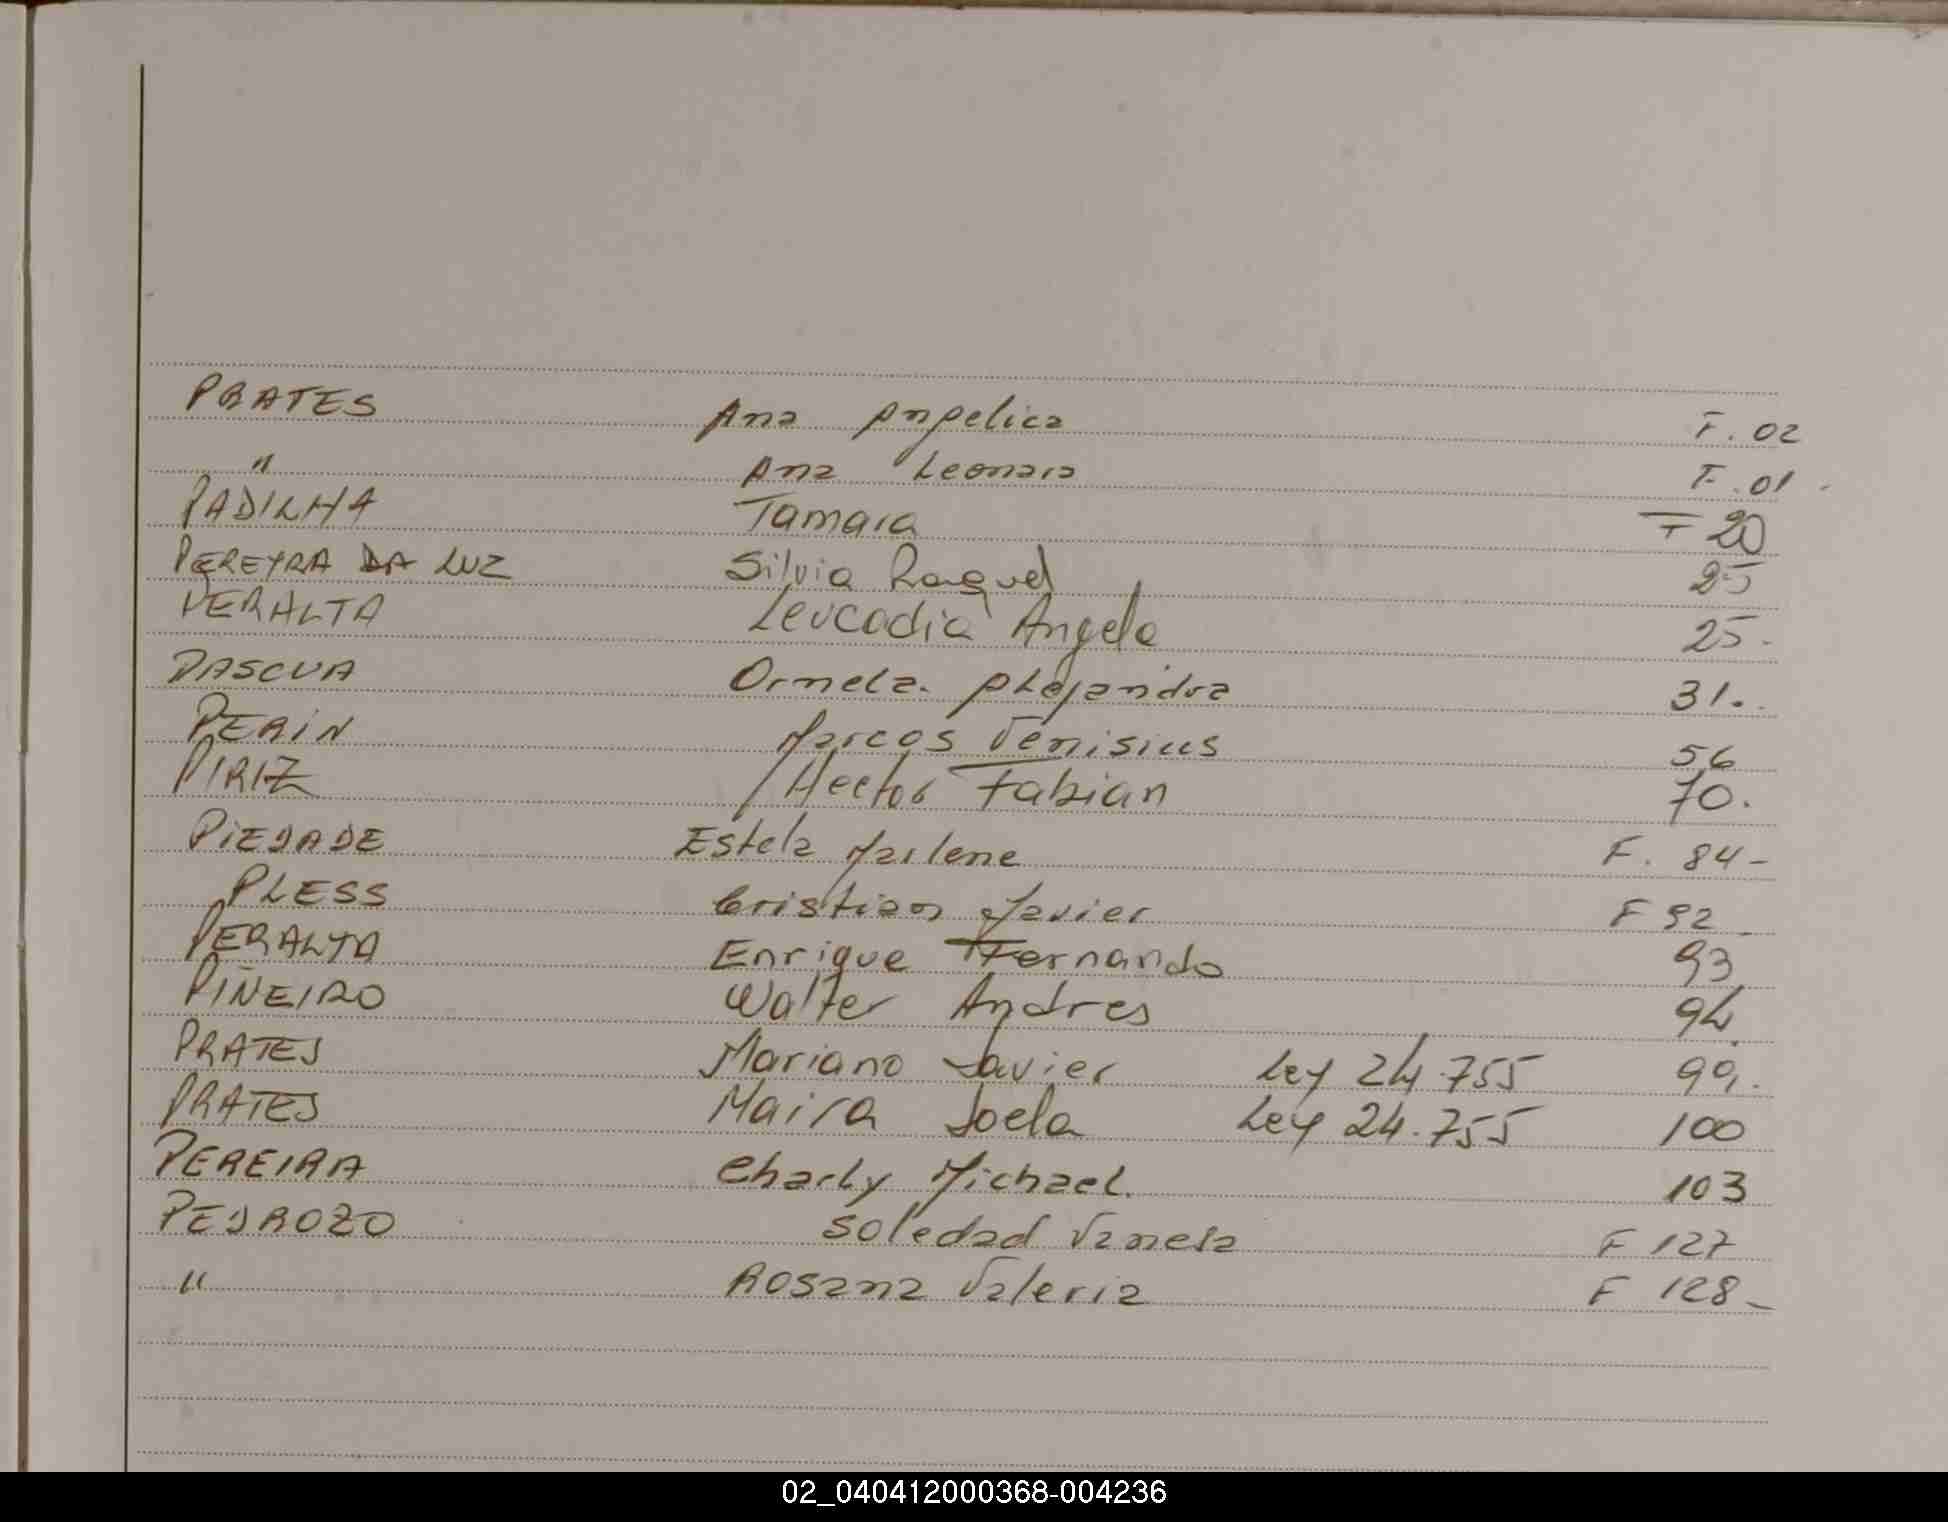 PRATES Ana Angelica F. 02
" Ana Leonara F. 01
PADILHA Tamara F 20
PEREYRA DA LUZ Silvia Raquel 25
PERALTA Leucadia Angela 25.
PASCUA Ornela. Alejandra 31.
PERIN Marcos Venisius 56
PIRIZ Hector Fabian 70.
PIEDADE Estela Marlene F. 84-
PLESS Cristian Javier F 92
PERALTA Enrique Fernando 93
PIÑEIRO Walter Andres 94
PRATES Mariano Javier Ley 24.755 99.
PRATES Maira Joela Ley 24.755 100
PEREIRA Charly Michael. 103
PEDROZO Soledad Vanesa F 127
" Rosana Valeria F 128-
02_040412000368-004236